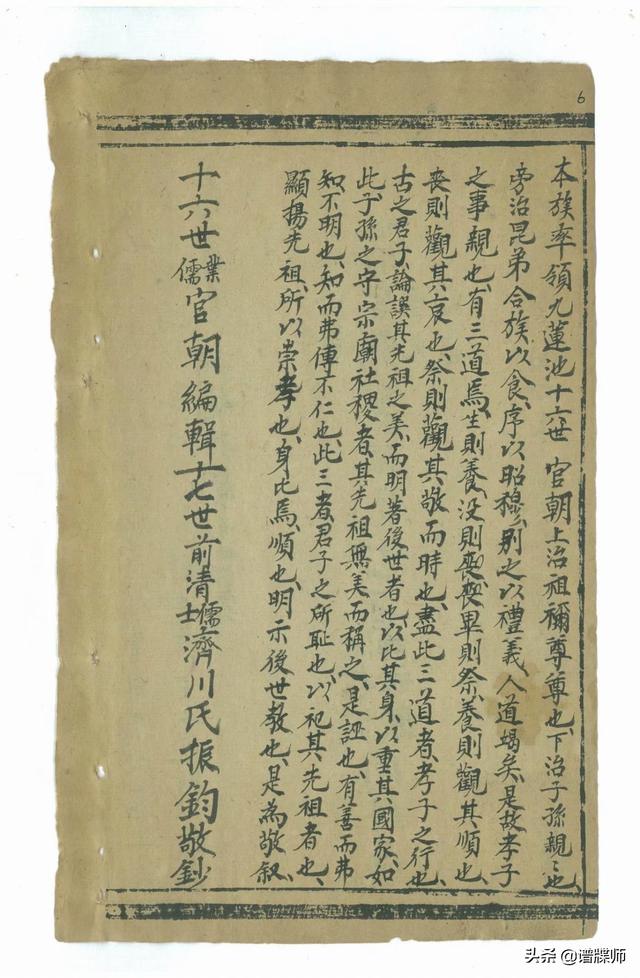 6
本族率領九蓮池十六世 官朝上治祖禰尊尊也、下治子孫親〻也、
旁治昆弟合族以食、序以昭穆、別之以禮義、人道竭矣、是故孝子
之事親也、有三道焉、生則養、没則喪、喪畢則祭、養則觀其順也、
喪則觀其哀也、祭則觀其敬而時也、盡此三道者、孝子之行也、
古之君子、論譔其先祖之美、而明著後世者也、以比其身、以重其國家、如
此、子孫之守宗廟社稷者、其先祖無美而稱之、是誣也、有善而弗
知、不明也、知而弗傳不仁也、此三者、君子之所恥也、以祀其先祖者也、
顯揚先祖、所以崇孝也、身比焉、順也、明示後世教也、是為敬叙、
十六世儒業官朝編輯十七世前清儒士濟川氏振鈞敬鈔
头条 @谱牒师